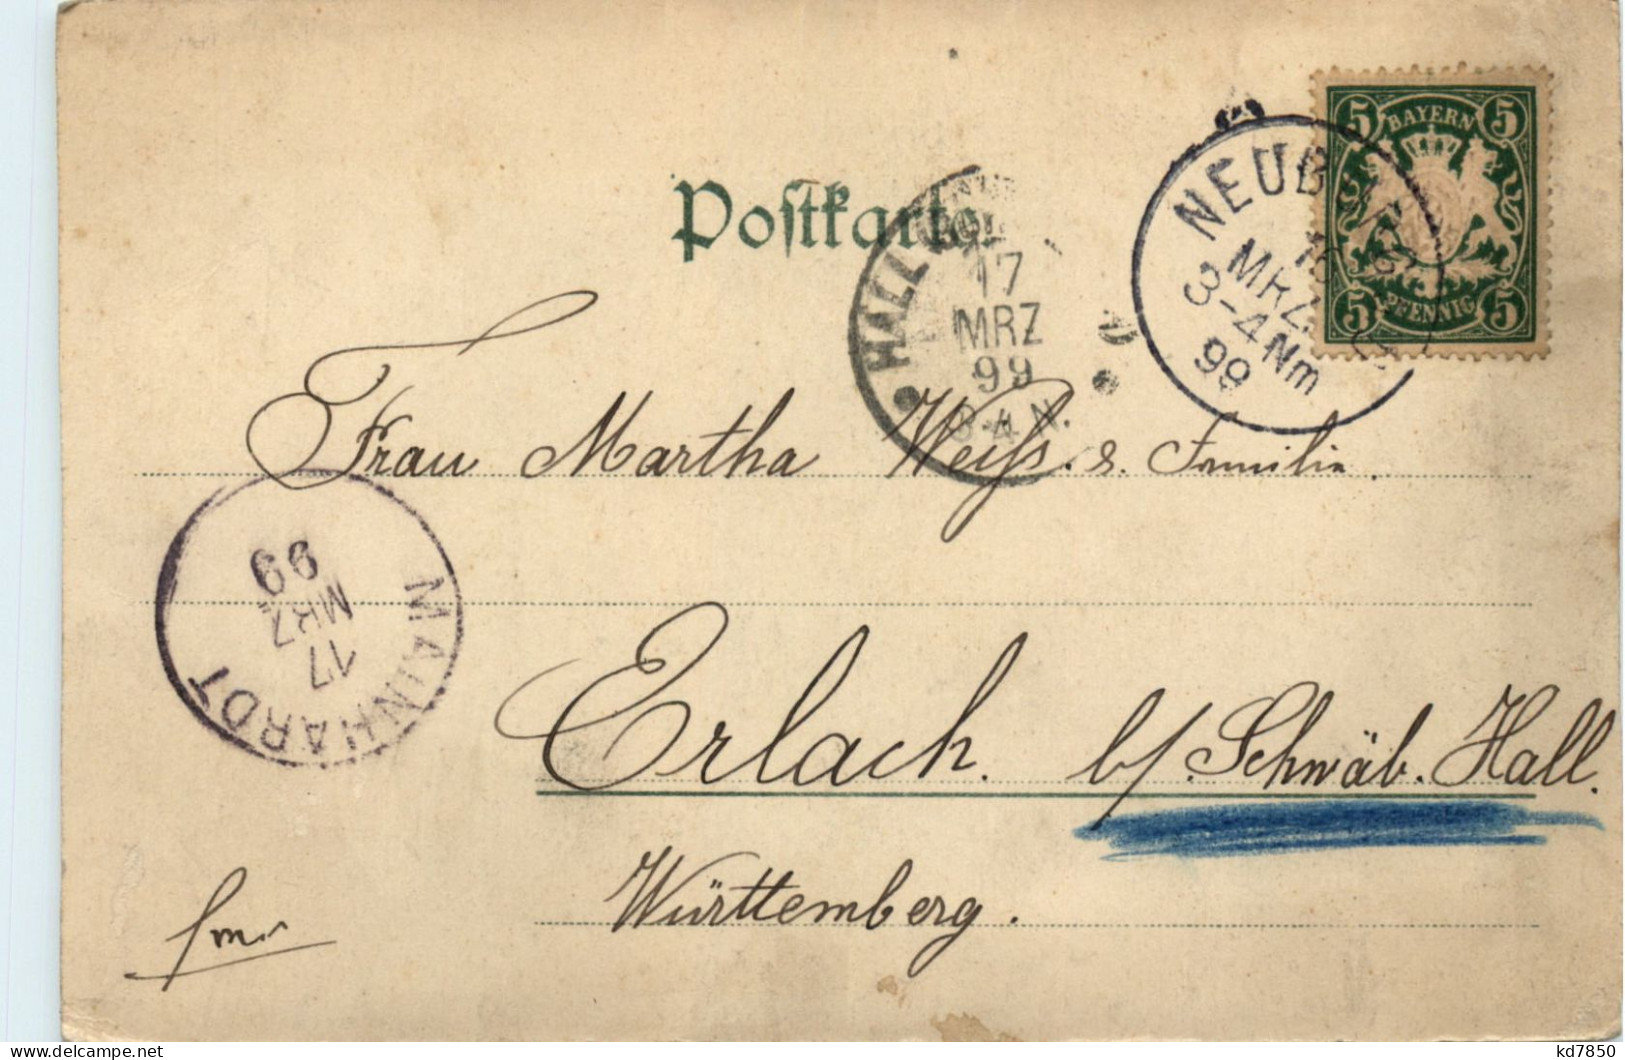 5 BAYERN 5
5 PFENNIG 5
Postkarte
HALL
17
MRZ
99
3-4 N.
NEUBURG
16
MRZ
3-4 Nm
99
Frau Martha Weiß. & Familie.
MAINHARDT
17
MRZ
99
Erlach. b/. Schwäb. Hall.
Württemberg.
kd7850